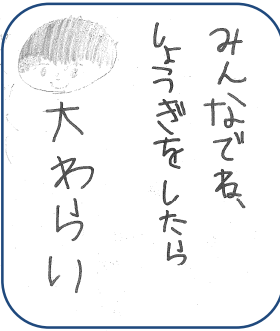 みんなでね、
しょうぎをしたら
大わらい